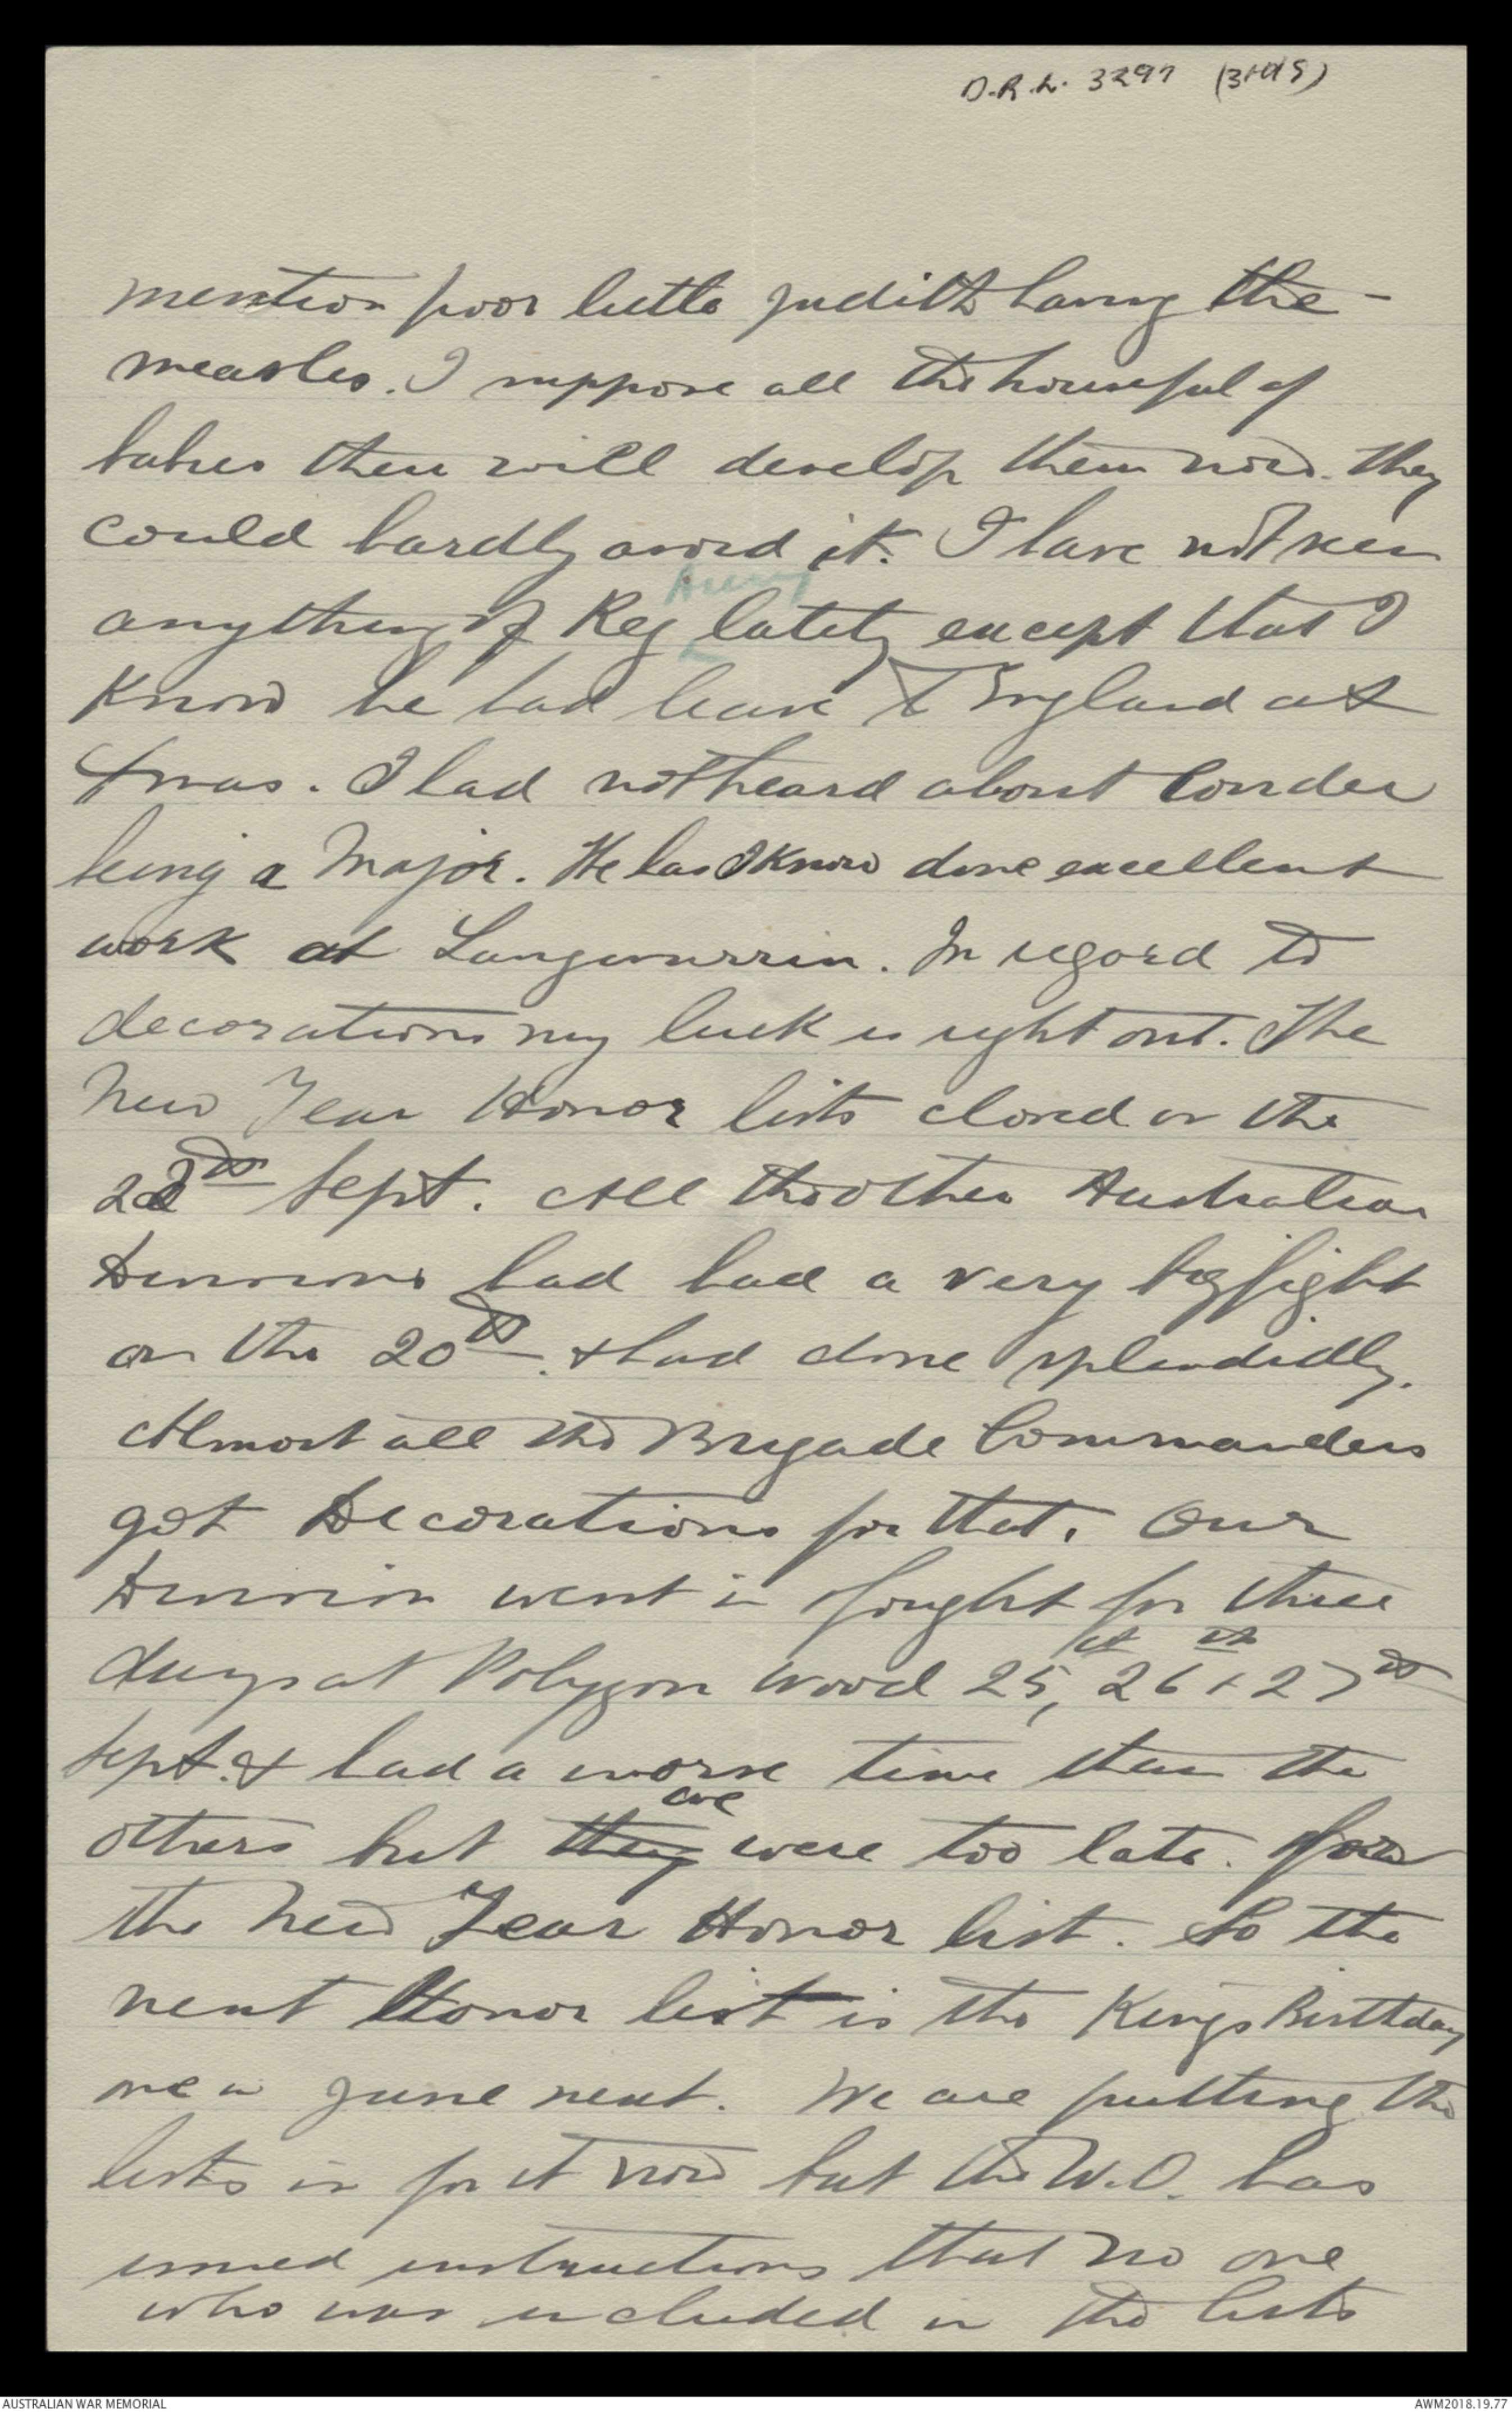 D.R.L. 3297 (3rd S)
mention poor little Judith having the -
measles. I suppose all the houseful of
babies there will develop them now. they
could hardly avoid it. I have not seen
Avery
anything of Reg lately except that I
know he had leave to England at
Xmas. I had not heard about Conder
being a Major. He has I know done excellent
work at Langwarrin. In regard to
decorations my luck is right out. The
New Year Honor lists closed on the
Sept. All the other Australian
Divisions had had a very big fight
on the 20th. & had done splendidly.
Almost all the Brigade Commanders
got Decorations for that. Our
Division went in & fought for three
days at Polygon Wood 25, 26th & 27th
Sept. & had a worse time than the
we
others but they were too late. for
the New Year Honor list. So the
next Honor list is the Kings Birthday
one in June next. We are putting the
lists in for it now but the W.O. has
issued instructions that no one
who was included in the lists
AUSTRALIAN WAR MEMORIAL
AWM2018.19.77